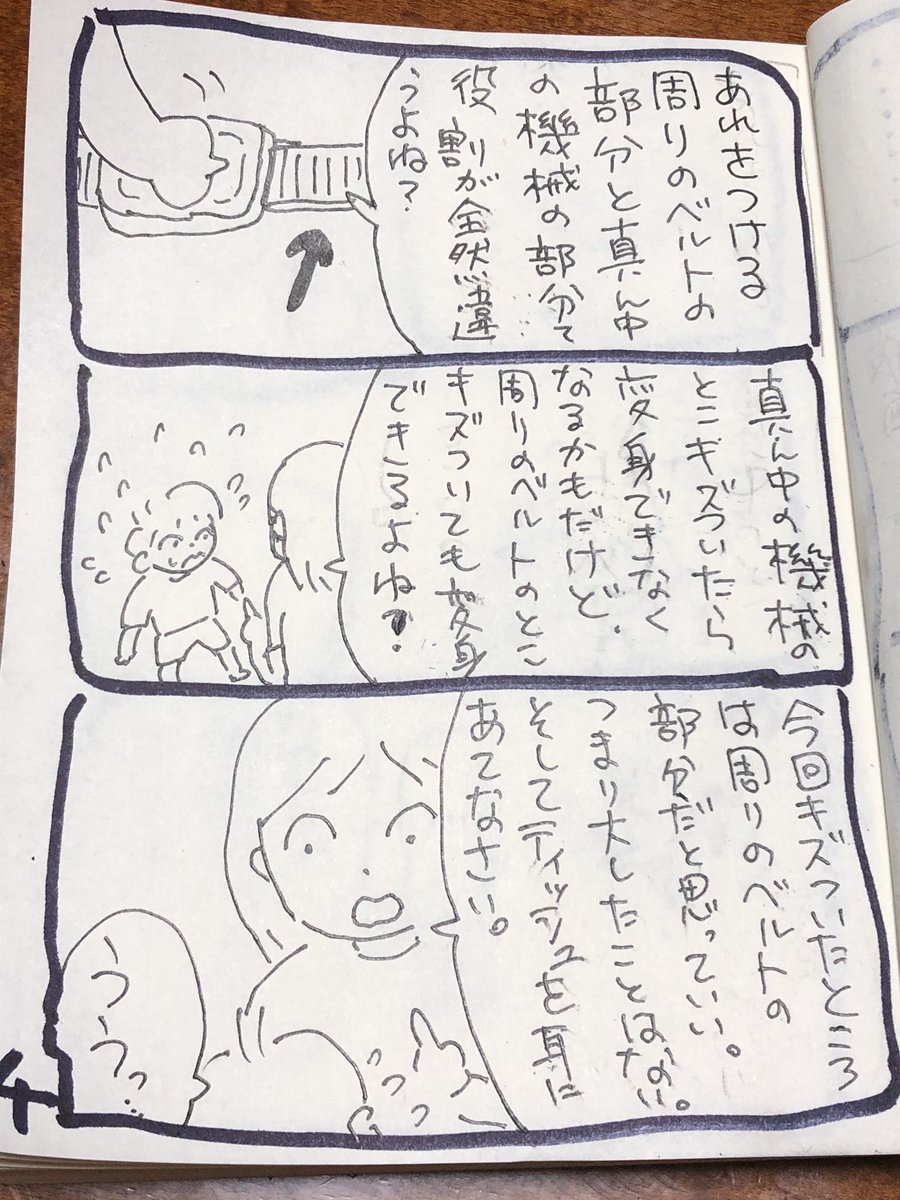 あれをつける
周りのベルトの
部分と真ん中
の機械の部分て
役割が全然違
うよね？
真ん中の機械の
とこキズついたら
変身できなく
なるかもだけど、
周りのベルトのとこ
キズついても変身
できるよね？
今回キズついたところ
は周りのベルトの
部分だと思っていい。
つまり大したことはない。
そしてティッシュを耳に
あてなさい。
うう…
4